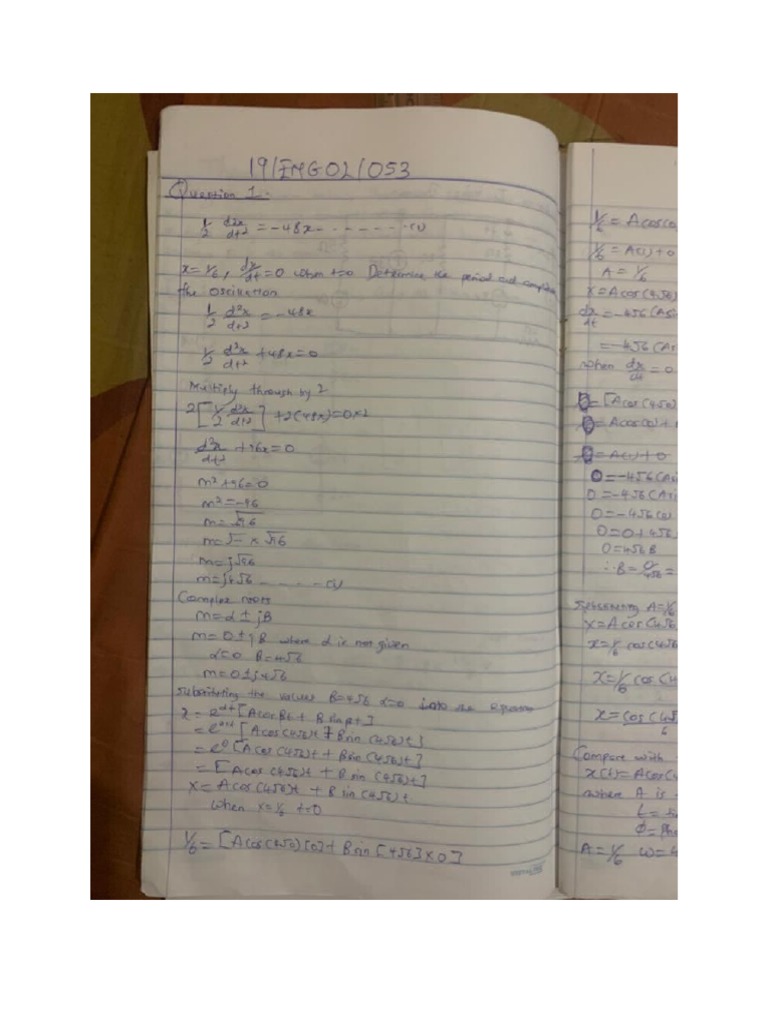 19/ENG02/053
Question 1:-
1/2 d2x/dt2 = -48x - - - - - - - (1)
x=1/6, dx/dt=0 when t=0 Determine the period and amplitude
the oscillation
1/2 d²x/dt² = -48x
1/2 d²x/dt² +48x=0
Multiply through by 2
2[1/2 d²x/dt²] +2(48x)=0x2
d²x/dt² +96x=0
m²+96=0
m²=-96
m=√-96
m=√- x √96
m=j√96
m=j4√6 - - - - -
Complex roots
m=α±jB
m=0±jB where α is not given
α=0 B=4√6
m=0±j4√6
Substituting the values B=4√6 α=0 into the equation
x=e^αt[AcosBt + B sinBt]
=e^0xt[Acos(4√6)t + Bsin(4√6)t]
=e^0[Acos(4√6)t + Bsin(4√6)t]
=[Acos(4√6)t + B sin(4√6)t]
x=Acos(4√6)t + B sin(4√6)t
when x=1/6 t=0
1/6=[Acos(4√0)[0]+Bsin[4√6]x0]
1/6 = Acos(0
1/6 = A(1)+0
A=1/6
x=Acos(4√6)
dx/dt=-4√6(
=-4√6(A
when dx/dt=0
0=[Acos(4√0)
0=Acos(0)+
0=A(1)+0
0=-4√6(A
0=-4√6(A
0=-4√6(0)
0=0+4√6
0=4√6B
∴B=0/4√6=
Substituting A=1/6
x=Acos(4√6
x=1/6 cos(4√6
x=1/6 cos(4
x=cos(4√/6
Compare with
x(t)=Acos(
where A is
A=1/6 ω=4